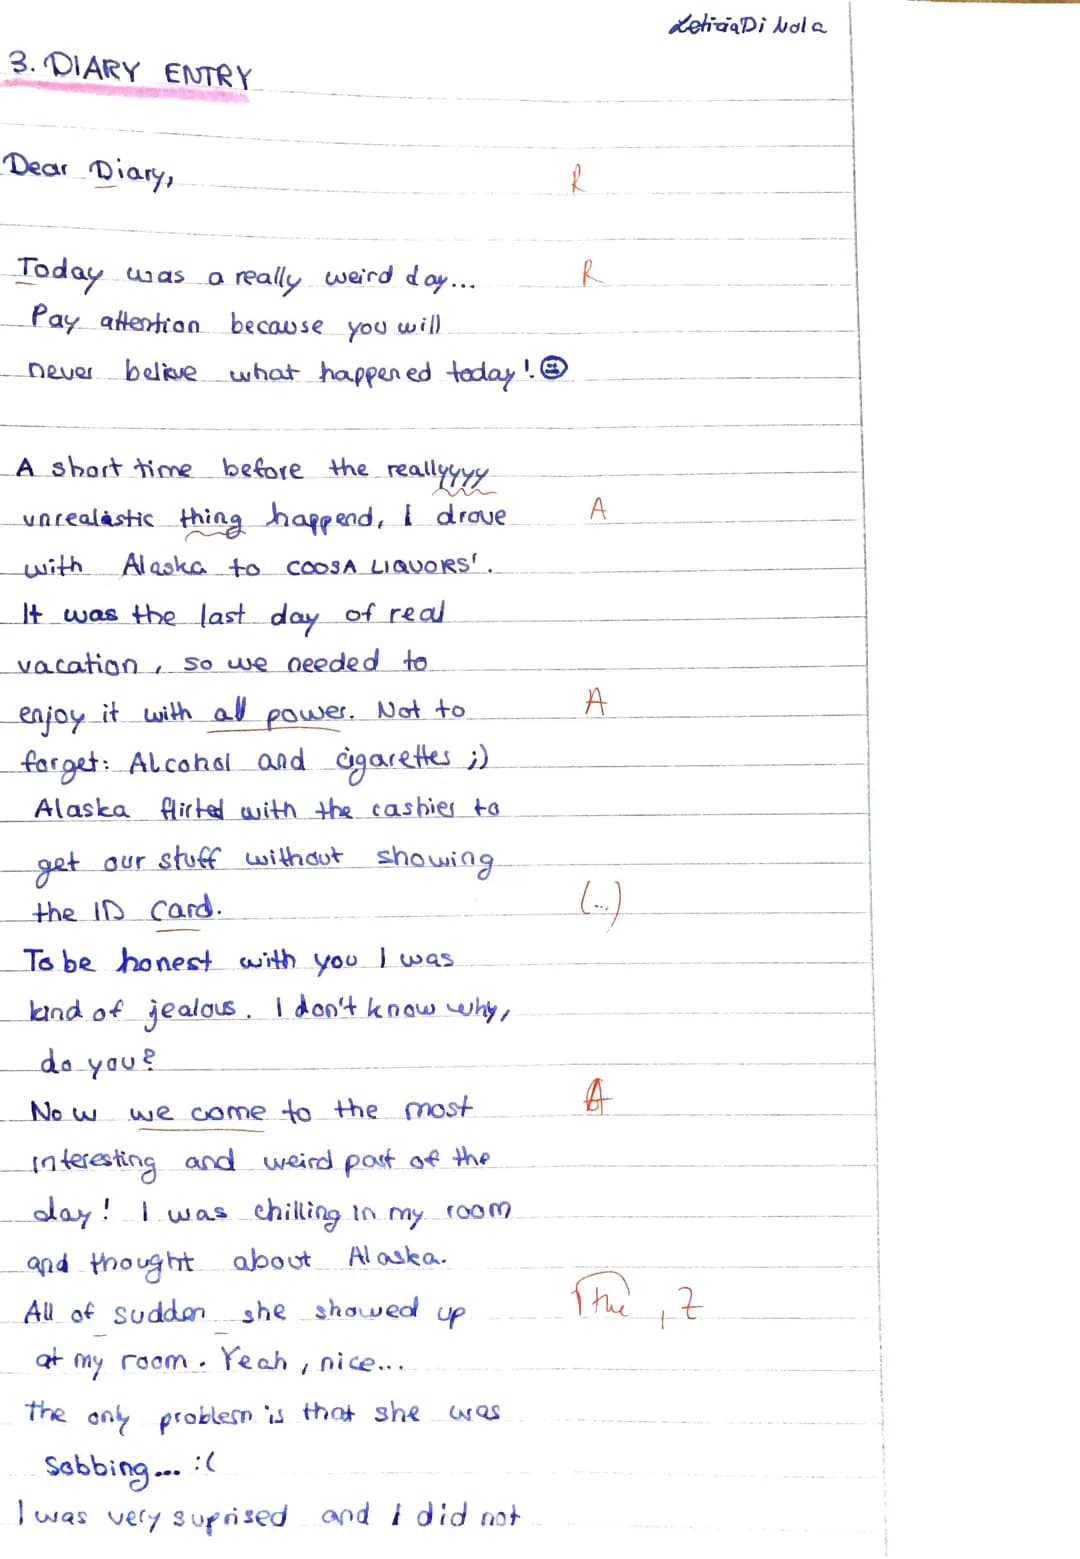 Leticia Di Nola
3. DIARY ENTRY
Dear Diary, R
Today was a really weird day... R
Pay attention because you will
never belive what happened today!
A short time before the reallyyyy
unrealistic thing happend, I drove A
with Alaska to COOSA LIQUORS'.
It was the last day of real
vacation, so we needed to
enjoy it with all power. Not to A
forget: Alcohol and cigarettes ;)
Alaska flirted with the cashier to
get our stuff without showing
the ID card. (...)
To be honest with you I was
kind of jealous. I don't know why,
do you?
Now we come to the most A
interesting and weird part of the
day! I was chilling in my room
and thought about Alaska.
All of sudden she showed up the , Z
at my room. Yeah, nice...
the only problem is that she was
sobbing... :(
I was very suprised and I did not